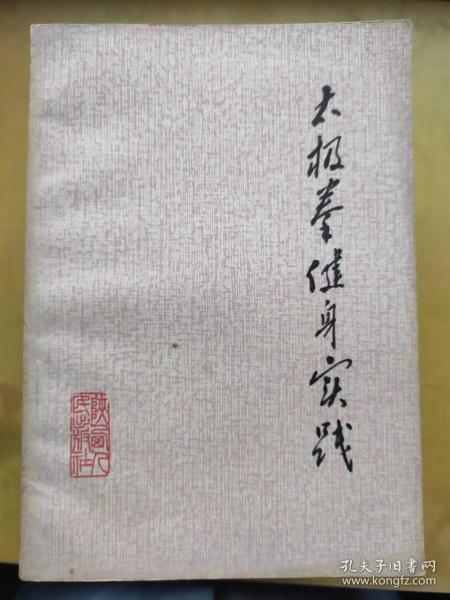 太极拳健身实践
陕西人
民出版社
孔夫子旧书网
www.kongfz.com